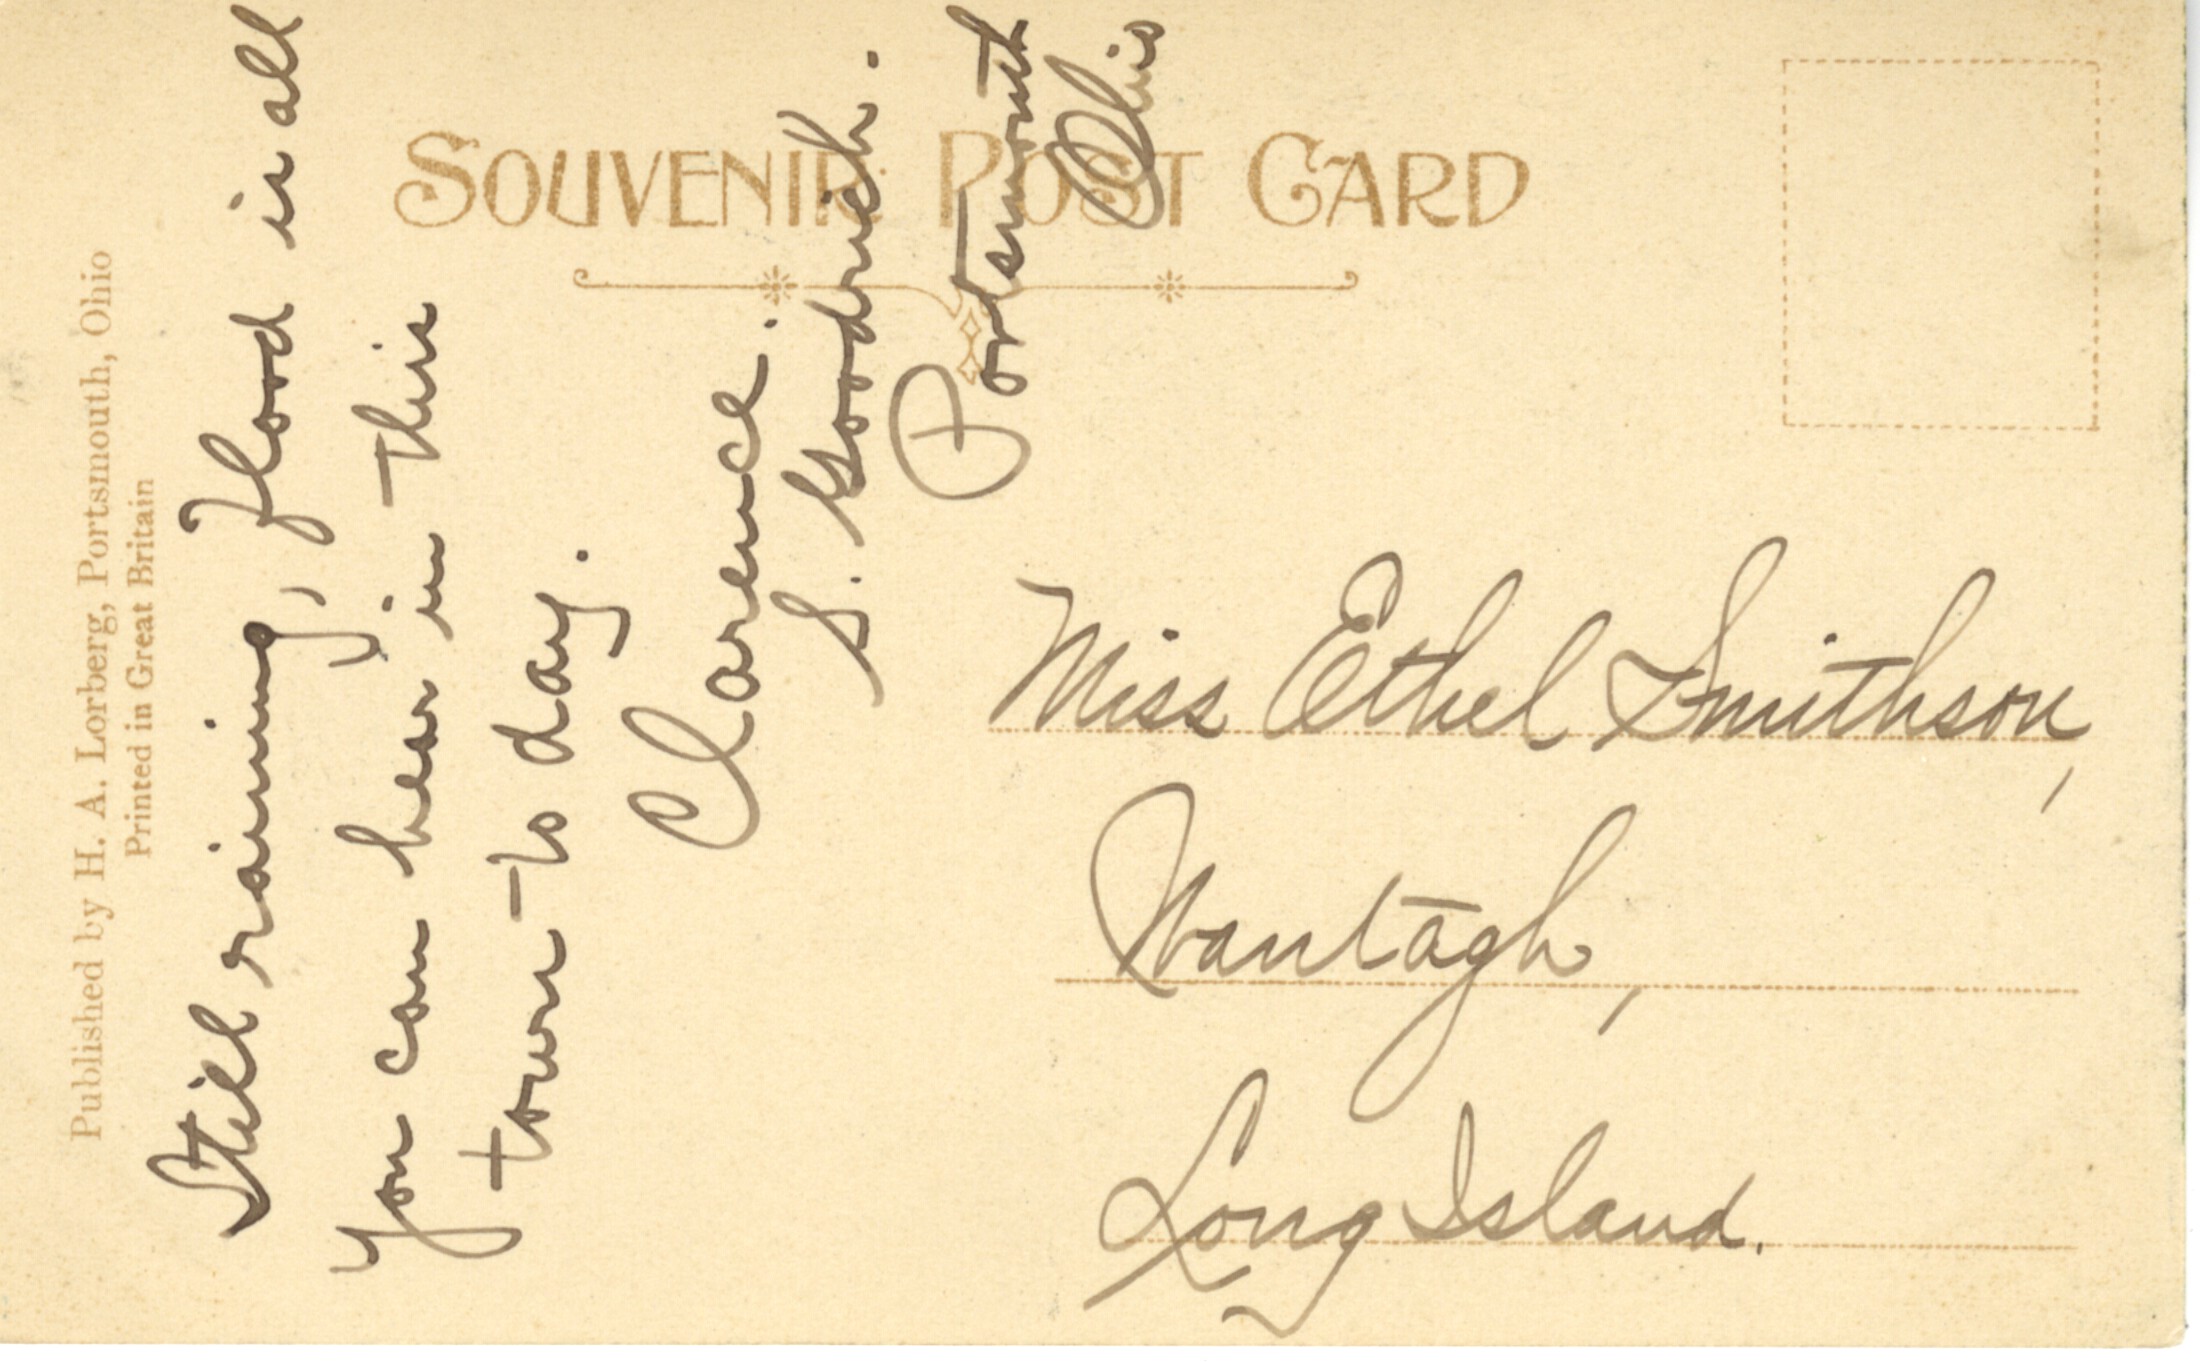 Published by H. A. Lorberg, Portsmouth, Ohio
Printed in Great Britain
SOUVENIR POST CARD
Still raining, flood is all
you can hear in this
town to day.
Clarence.
S. Goodrich.
Portsmouth
Ohio
Miss Ethel Smithson,
Wantagh,
Long Island.